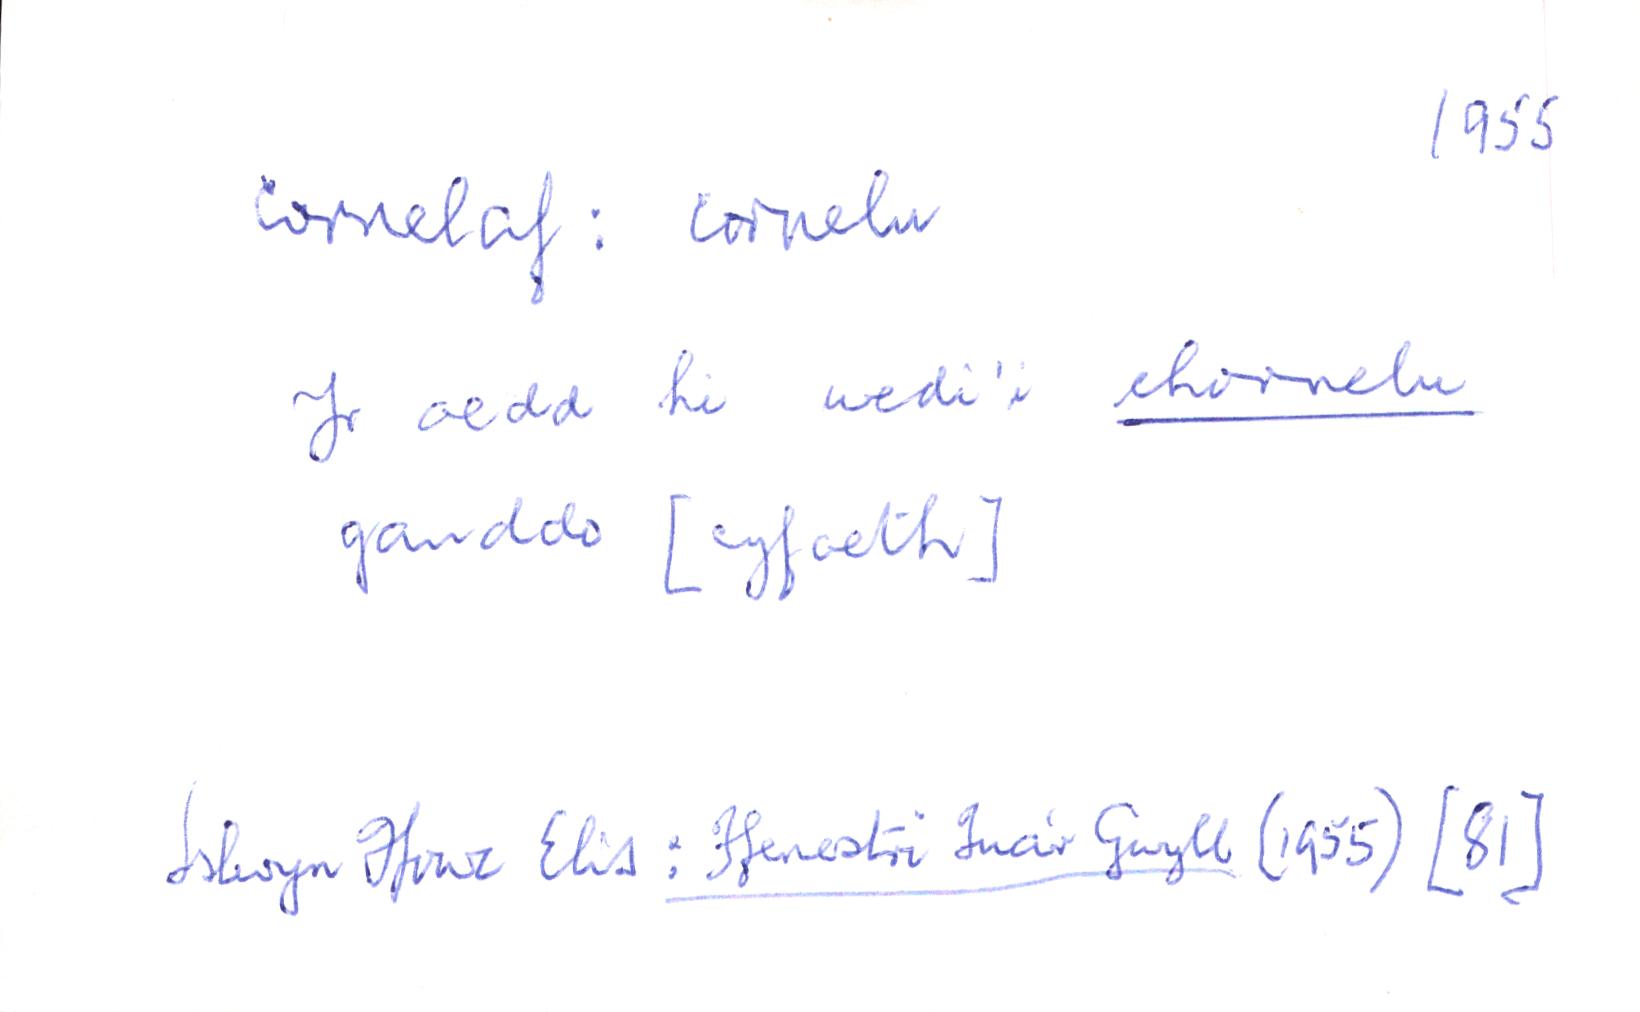 1955
cornelaf: cornelu
Yr oedd hi wedi'i chornelu
ganddo [cyfoeth]
Islwyn Ffowc Elis: Ffenestri Tua'r Gwyll (1955) [81]